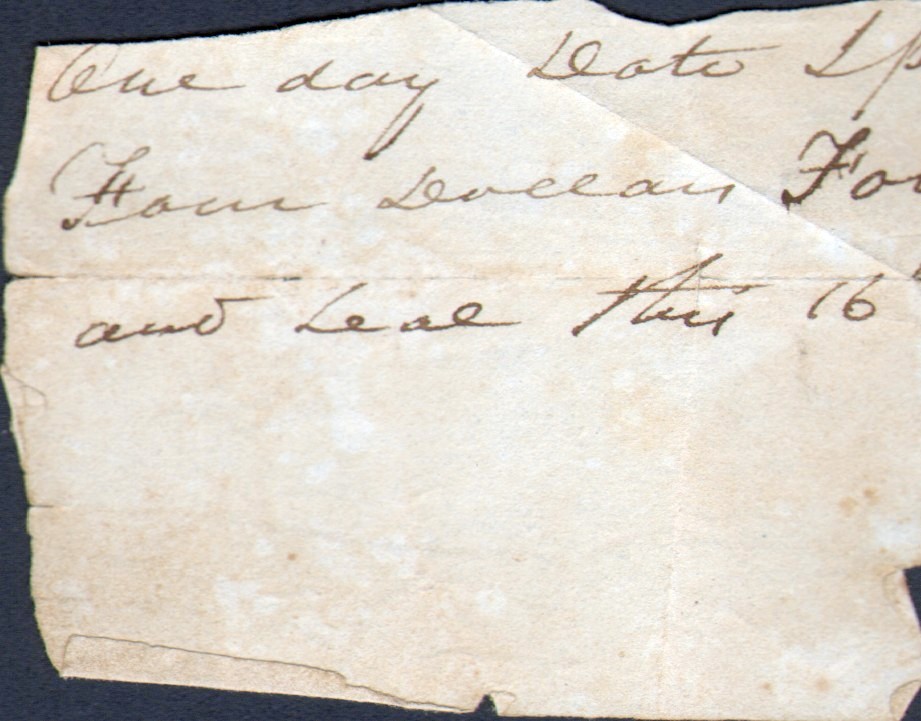 One day Date I p
Four Dollars For
and Seal this 16